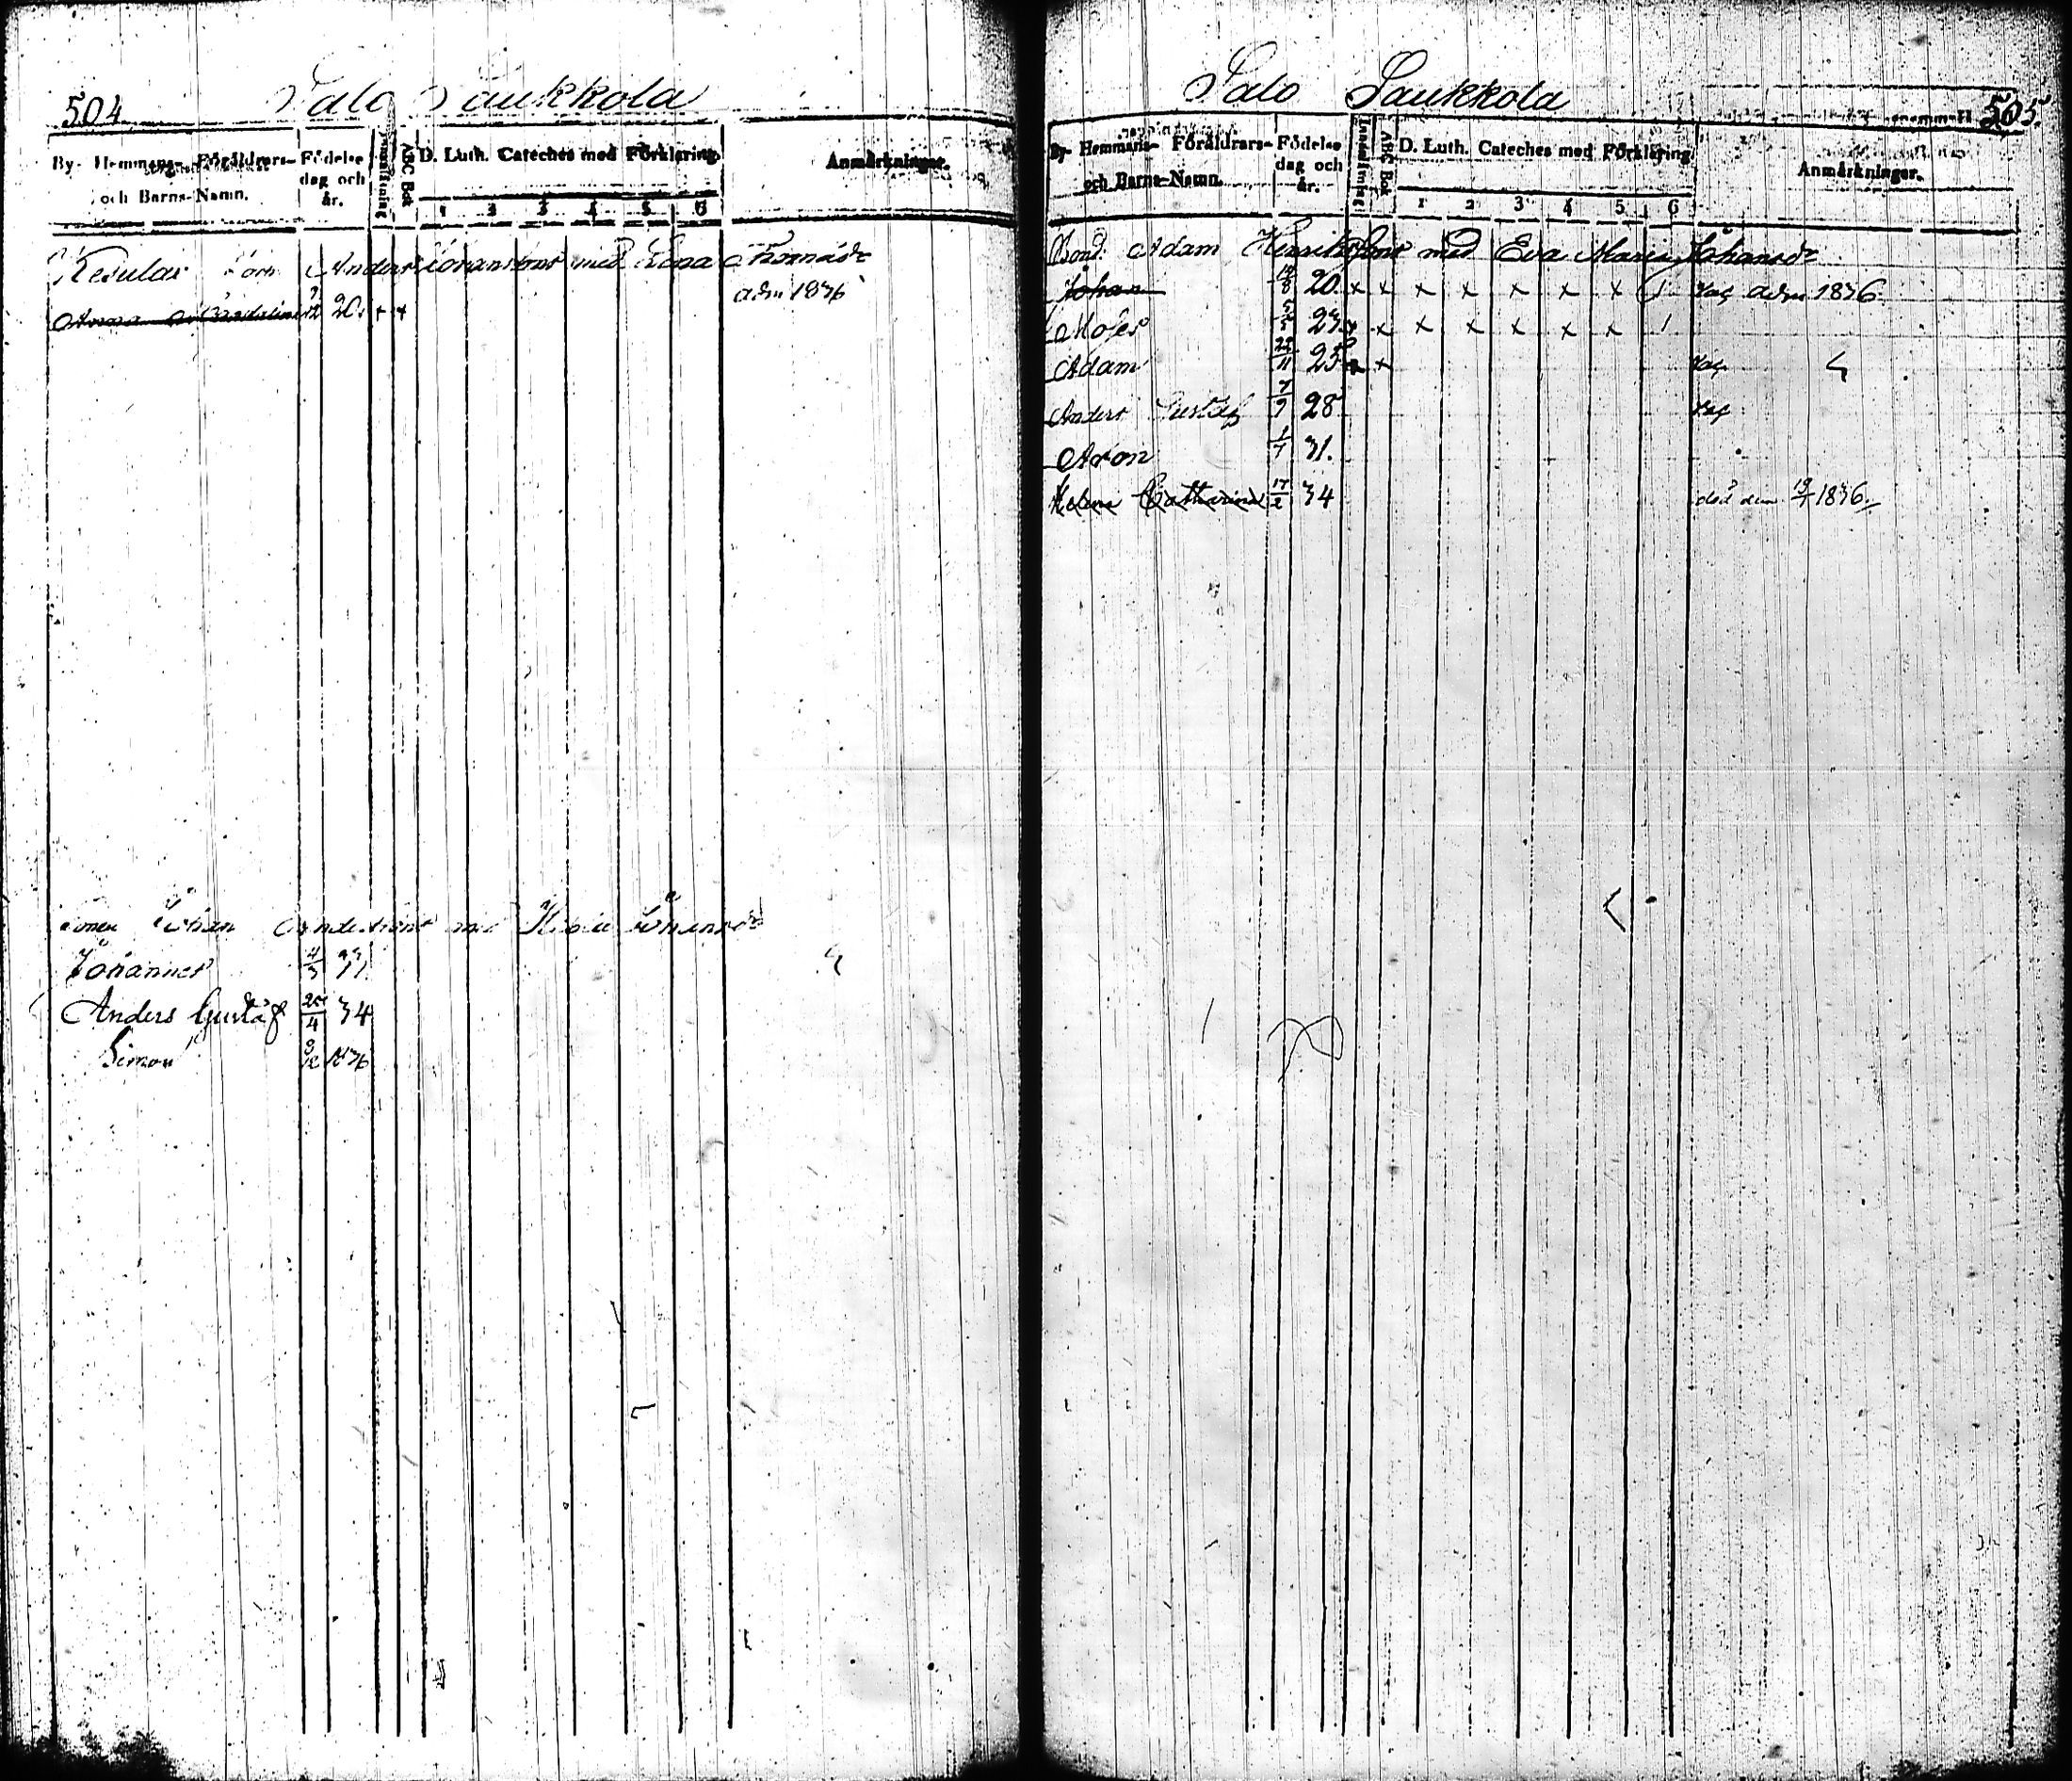 504
Salo Saukkola
By- Hemmans- Föräldrars- och Barns-Namn.
Födelse dag och år.
ABC Bok
D. Luth. Cateches med Förklaring
1 2 3 4 5 6
Anmärkningar.
Anders Johansons med Lena Thomasdr
adm 1836
20 + +
Johan Anderssons med Johansdr
Johannes 4/3 33
Anders Gustaf 4 34
Simon 9/12 1836
Salo Saukkola
505.
By- Hemmans- Föräldrars- och Barns-Namn.
Födelse dag och år.
Innanläsning
ABC Bok
D. Luth. Cateches med Förklaring
1 2 3 4 5 6
Anmärkningar.
Bond. Adam Henriksons med Eva Maria Johansdr
Johan 20. x x x x x x x 1. vac adm 1836
Moses 23 x x x x x x x 1
Adam 22/11 25 x x vac
Anders Gustaf 7/9 28 vac
Aron 1/7 31.
Helena Catharina 17/2 34 död den 1836